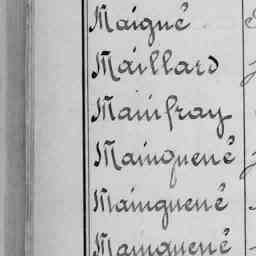 Maigné
Maillard
Mainfray
Mainguené
Mainguené
Mainguené